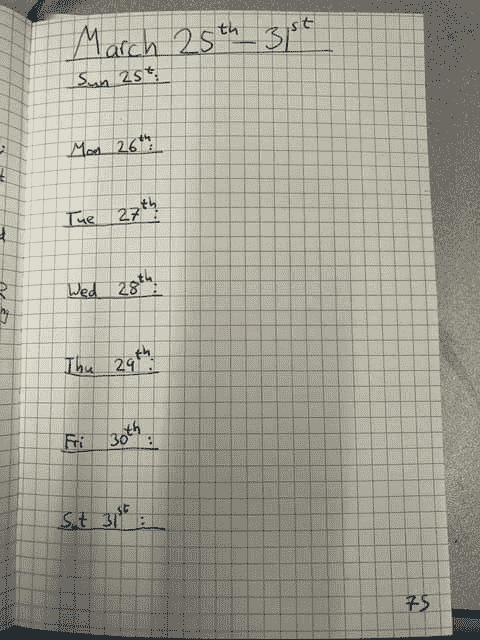 March 25th – 31st
Sun 25t:
Mon 26th:
Tue 27th:
Wed 28th:
Thu 29th:
Fri 30th:
Sat 31st:
75